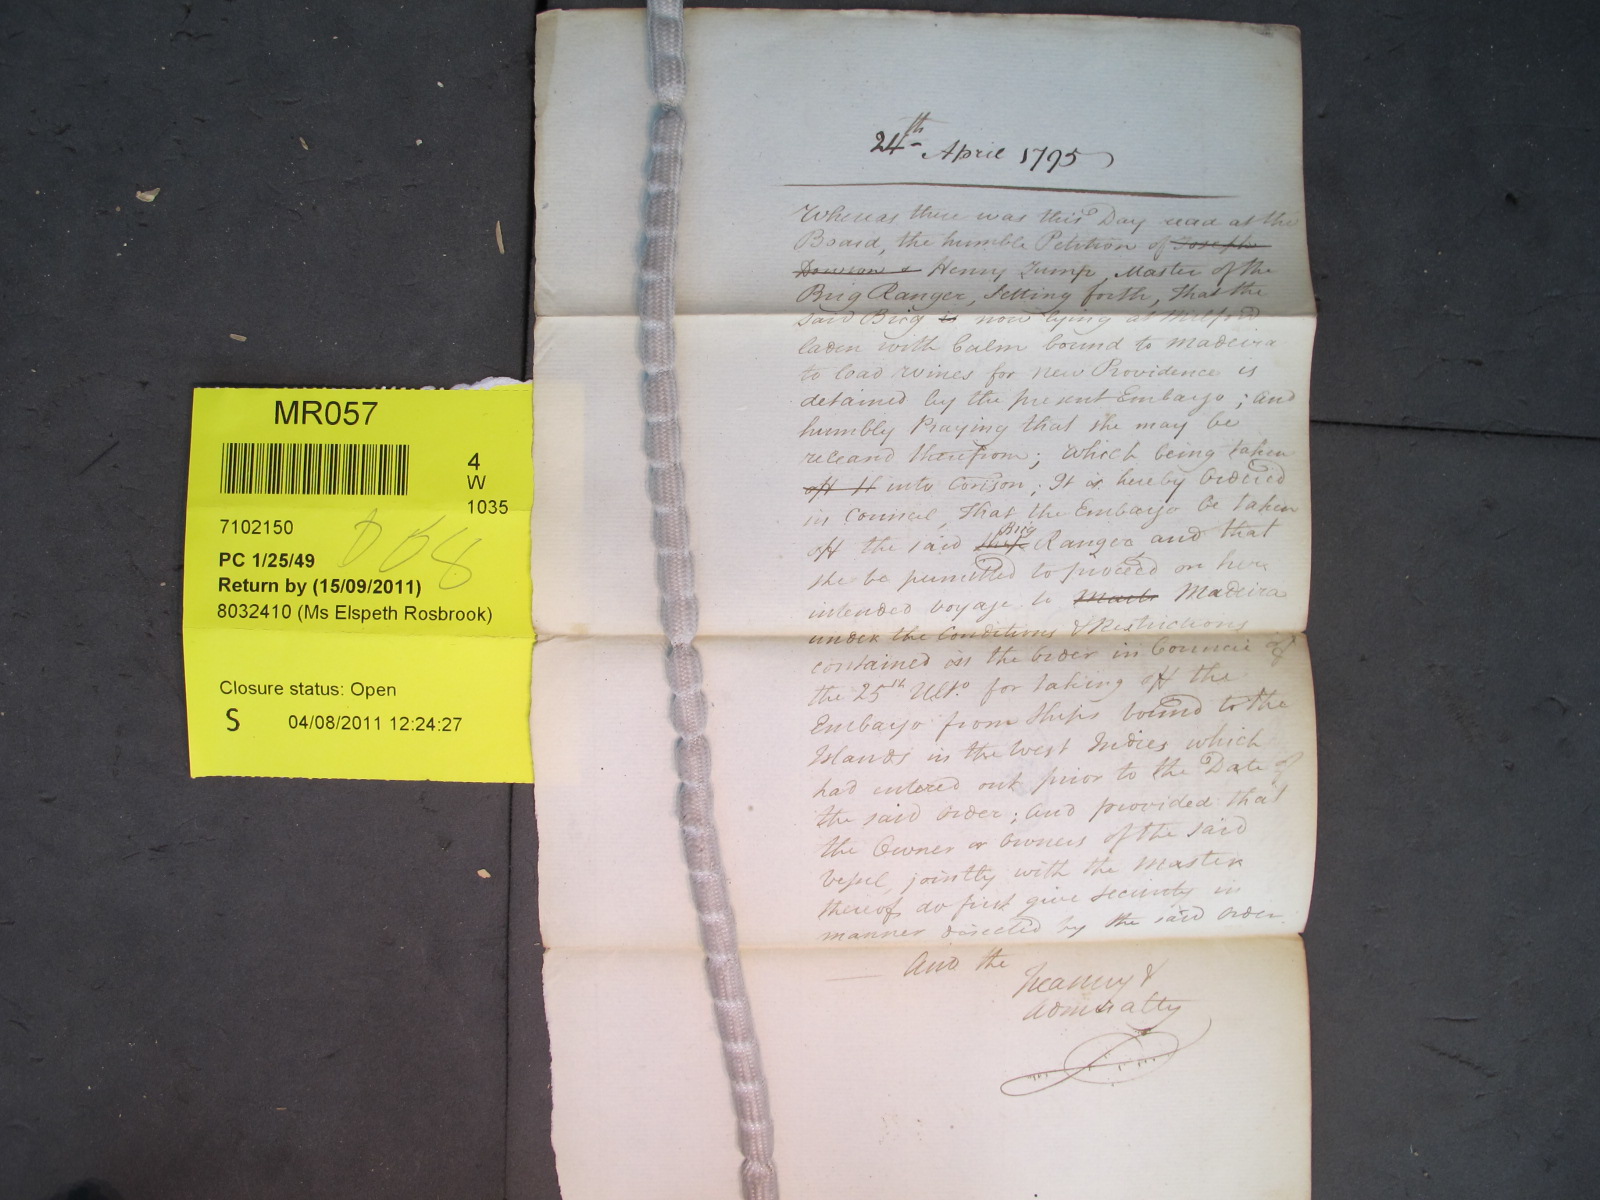 24th April 1795
Whereas there was this Day read at the
Board, the humble Petition of Joseph
Dowson & Henry Jump, Master of the
Brig Ranger, Setting forth, that the
said Brig is now lying at Milford
laden with Culm bound to Madeira
to load Wines for New Providence is
detained by the present Embargo; and
humbly Praying that she may be
released therefrom; Which being taken
off It into Conson; It is hereby Ordered
in Council, That the Embargo be taken
Brig
off the said Ship Ranger and that
she be permitted to proceed on her
intended voyage to Madeira
under the Conditions & Restrictions
contained in the Order in Council of
the 25th Ulto. for taking off the
Embargo from Ships bound to the
Islands in the West Indies which
had entered out prior to the Date of
the said Order; and provided that
the Owner or Owners of the said
Vessel, jointly with the Master
thereof do first give Security in
manner directed by the said Order.
And the
Treasury &
Admiralty
MR057
4
W
1035
7102150
PC 1/25/49
Return by (15/09/2011)
8032410 (Ms Elspeth Rosbrook)
Closure status: Open
S 04/08/2011 12:24:27